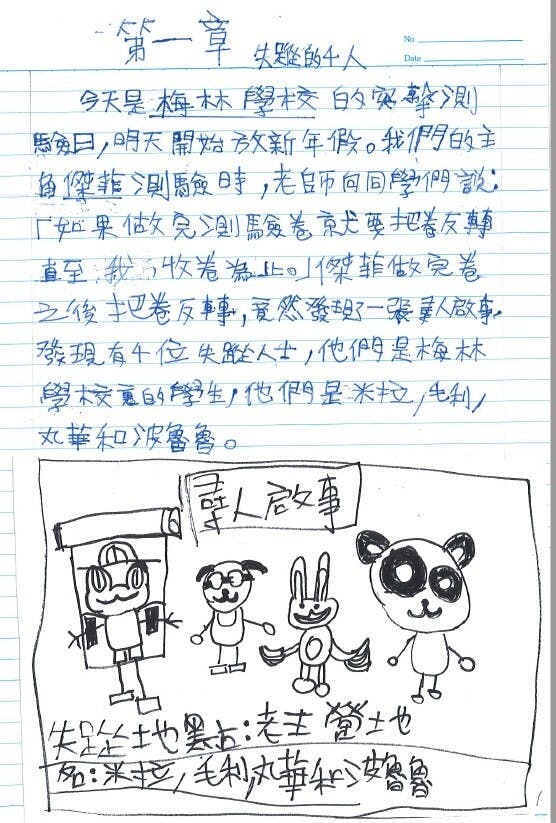 第一章
失蹤的4人
No
Date
今天是梅林學校的突擊測
驗日，明天開始放新年假。我們的主
角傑菲測驗時，老師向同學們說：
「如果做完測驗卷就要把卷反轉
直至我 收卷為止。」傑菲做完卷
之後把卷反轉，竟然發現了一張尋人啟事，
發現有4位失蹤人士，他們是梅林
學校裏的學生，他們是米拉，毛利，
丸華和波魯魯。
尋人啟事
失蹤土地黑占：老 營土也
名：米拉，毛利，丸華和波魯魯
1